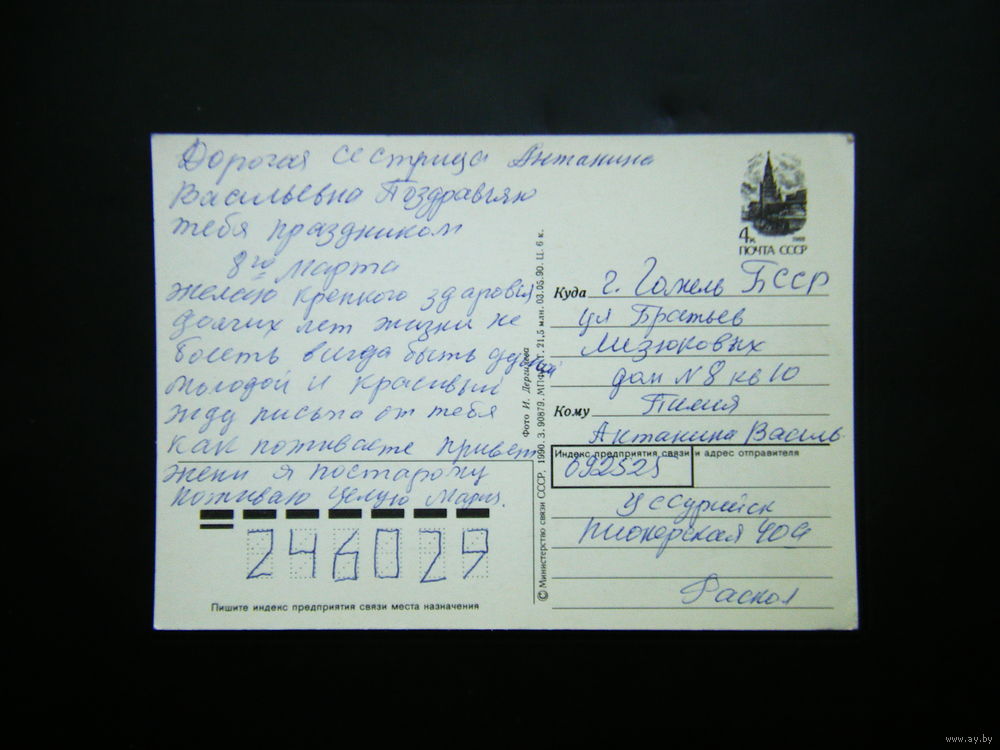 Дорогая сестрица Антанина
Васильевна Поздравляю
тебя праздником
8го Марта
желаю крепкого здаровія
долгих лет жизни не
болеть всігда быть
молодой и красивый
жду письма от тебя
как поживаете привет
жени я постарому
поживаю целую Мария.
246029
Пишите индекс предприятия связи места назначения
© Министерство связи СССР. 1990. З. 90879. МПФГ. 21,5 млн. 03.05.90. Ц. 6 к.
Фото И. Дергилёва
4к 1988
ПОЧТА СССР
Куда г. Гомель БССР
ул Братьев
Лизюковых
дом N 8 кв 10
Кому
Антанина Василь
Индекс предприятия связи и адрес отправителя
692525
Уссурийск
Пионерская 40а
www.ay.by